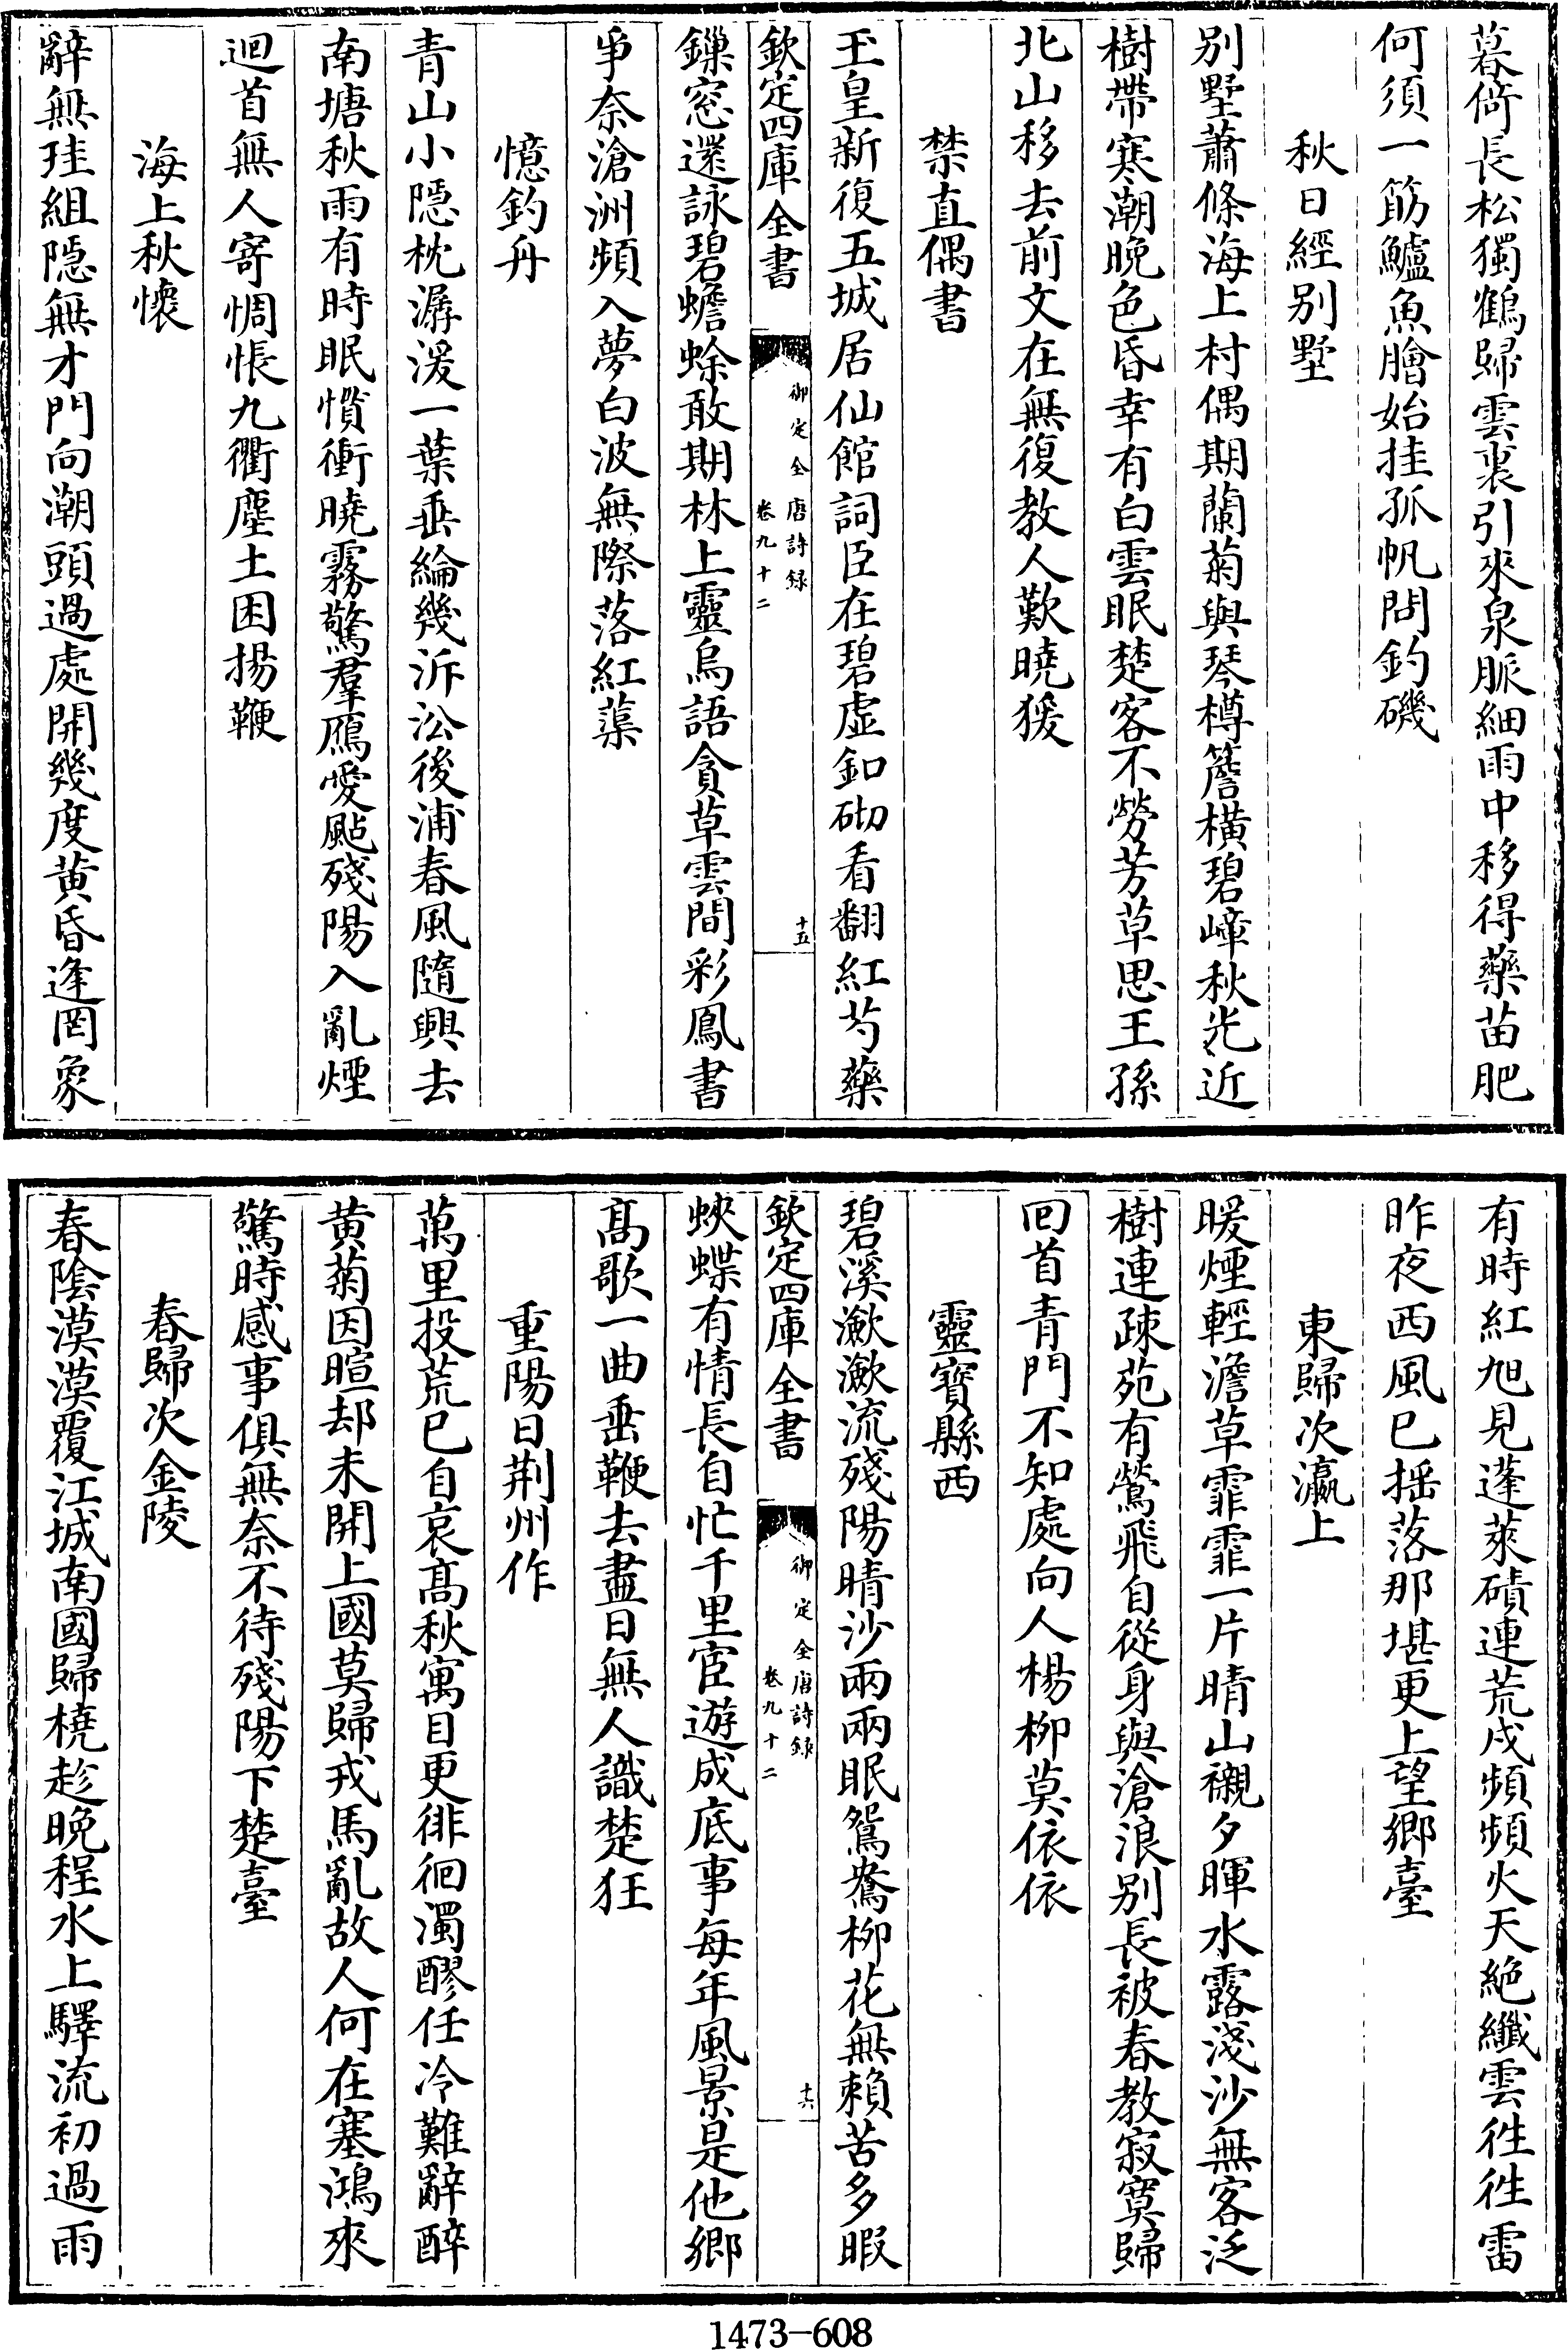 暮倚長松獨鶴歸雲裏引來泉脈細雨中移得藥苗肥
何須一筯鱸魚膾始挂孤帆問釣磯
秋日經别墅
别墅蕭條海上村偶期蘭菊與琴樽簷橫碧嶂秋光近
樹帶寒潮晚色昏幸有白雲眠楚客不勞芳草思王孫
北山移去前文在無復教人歎曉猨
禁直偶書
玉皇新復五城居仙館詞臣在碧虛釦砌看翻紅芍藥
欽定四庫全書
御定全唐詩録
卷九十二
十五
鏁窓還詠碧蟾蜍敢期林上靈烏語貪草雲間彩鳳書
爭奈滄洲頻入夢白波無際落紅蕖
憶釣舟
青山小隠枕潺湲一葉垂綸幾泝沿後浦春風隨興去
南塘秋雨有時眠慣衝曉霧驚羣鴈愛颭殘陽入亂煙
迴首無人寄惆悵九衢塵土困揚鞭
海上秋懷
辭無珪組隠無才門向潮頭過處開幾度黄昏逢罔象
有時紅旭見蓬萊磧連荒戍頻頻火天絶纖雲徃徃雷
昨夜西風已揺落那堪更上望鄉臺
東歸次瀛上
暖煙輕澹草霏霏一片晴山襯夕暉水露淺沙無客泛
樹連疎苑有鶯飛自從身與滄浪别長被春教寂寞歸
回首青門不知處向人楊柳莫依依
靈寳縣西
碧溪瀲瀲流殘陽晴沙兩兩眠鴛鴦柳花無賴苦多暇
欽定四庫全書
御定全唐詩録
卷九十二
十六
蛺蝶有情長自忙千里宦遊成底事每年風景是他鄉
髙歌一曲垂鞭去盡日無人識楚狂
重陽日荆州作
萬里投荒已自哀髙秋寓目更徘徊濁醪任冷難辭醉
黄菊因暄却未開上國莫歸戎馬亂故人何在塞鴻來
驚時感事俱無奈不待殘陽下楚臺
春歸次金陵
春陰漠漠覆江城南國歸橈趁晚程水上驛流初過雨
1473-608